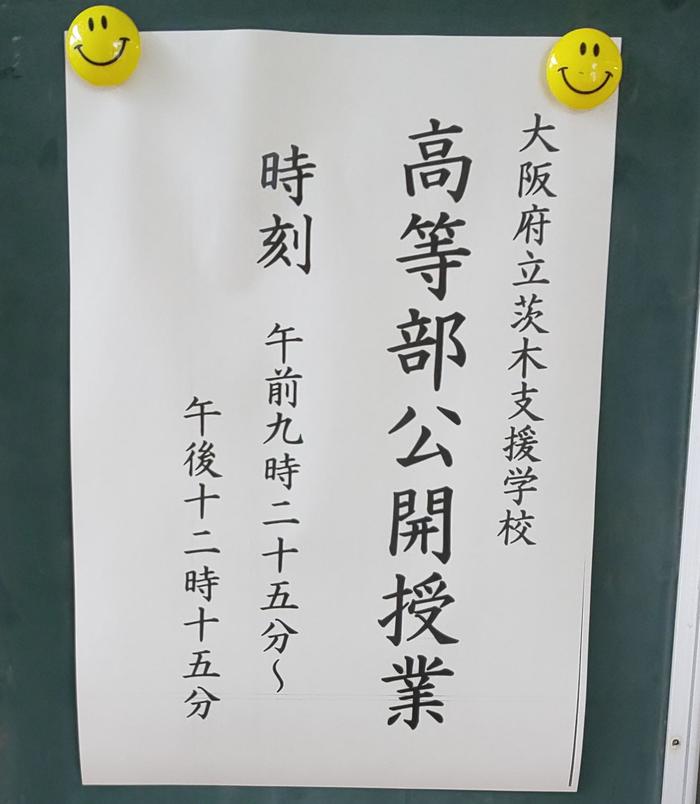 大阪府立茨木支援学校
高等部公開授業
時刻 午前九時二十五分～
午後十二時十五分